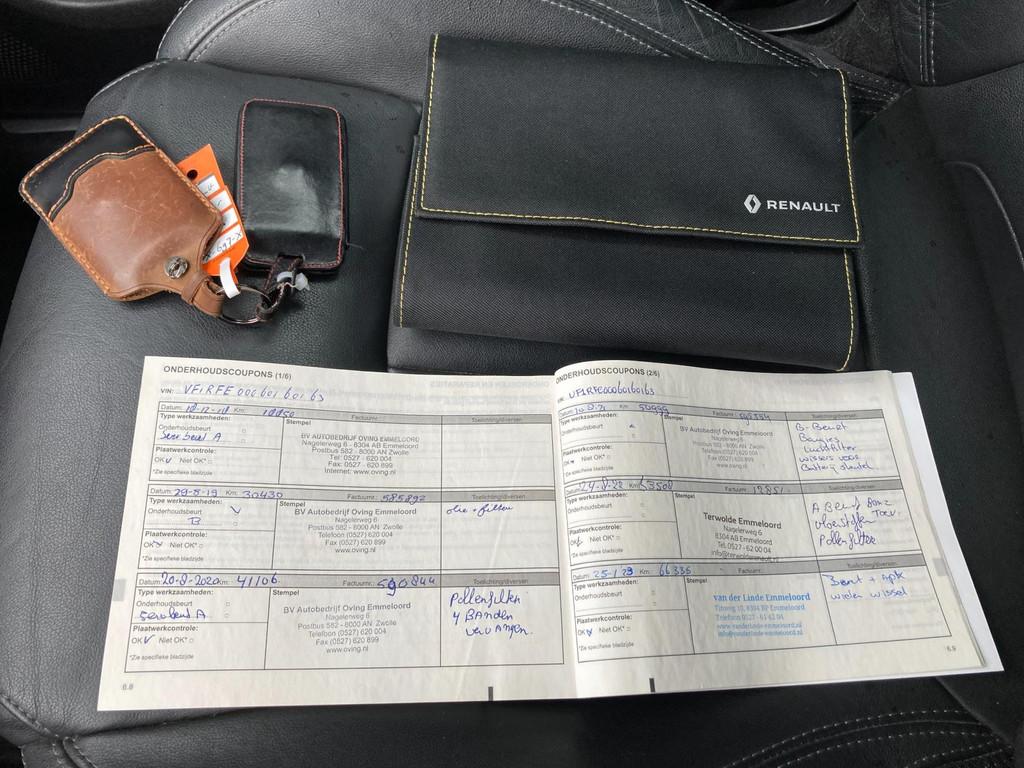 RENAULT
ONDERHOUDSCOUPONS (1/6)
VIN: VF1RFE00060160163
Datum: 18-12-18 Km:
Factuurnr.:
Toelichting/diversen
Type werkzaamheden:
Stempel
Onderhoudsbeurt
Servbeurt A
Plaatwerkcontrole:
OK Niet OK*
*Zie specifieke bladzijde
BV AUTOBEDRIJF OVING EMMELOORD
Nagelerweg 6 - 8304 AB Emmeloord
Postbus 582 - 8000 AN Zwolle
Tel: 0527 - 620 004
Fax: 0527 - 620 899
Internet: www.oving.nl
Datum: 29-5-19 Km: 30430
Factuurnr.: 585892
Toelichting/diversen
Type werkzaamheden:
Stempel
Onderhoudsbeurt
B
Plaatwerkcontrole:
OK Niet OK*
*Zie specifieke bladzijde
BV Autobedrijf Oving Emmeloord
Nagelerweg 6
Postbus 582 - 8000 AN Zwolle
Telefoon (0527) 620 004
Fax (0527) 620 899
www.oving.nl
olie + filter
Datum: 20-8-2020 Km: 41106
Factuurnr.: 590844
Toelichting/diversen
Type werkzaamheden:
Stempel
Onderhoudsbeurt
Servbeurt A
Plaatwerkcontrole:
OK Niet OK*
*Zie specifieke bladzijde
BV Autobedrijf Oving Emmeloord
Nagelerweg 6
Postbus 582 - 8000 AN Zwolle
Telefoon (0527) 620 004
Fax (0527) 620 899
www.oving.nl
Pollenfilter
4 Banden
vervangen.
6.8
ONDERHOUDSCOUPONS (2/6)
VIN: VF1RFE00060160163
Datum: Km: 50999
Factuurnr.:
Toelichting/diversen
Type werkzaamheden:
Stempel
Onderhoudsbeurt
Plaatwerkcontrole:
OK Niet OK*
*Zie specifieke bladzijde
BV Autobedrijf Oving Emmeloord
Nagelerweg 6
Postbus 582 - 8000 AN Zwolle
Telefoon (0527) 620 004
Fax (0527) 620 899
www.oving.nl
B-Beurt
Bougies
Luchtfilter
wissers voor
Batterij sleutel
Datum: 24-8-22 Km: 53500
Factuurnr.:
Toelichting/diversen
Type werkzaamheden:
Stempel
Onderhoudsbeurt
Plaatwerkcontrole:
OK Niet OK*
*Zie specifieke bladzijde
Terwolde Emmeloord
Nagelerweg 6
8304 AB Emmeloord
Tel. 0527 - 62 00 04
A Beurt
vloeistoffen
Pollenfilter
Datum: 25-1-23 Km: 66335
Factuurnr.:
Toelichting/diversen
Type werkzaamheden:
Stempel
Onderhoudsbeurt
Plaatwerkcontrole:
OK Niet OK*
*Zie specifieke bladzijde
van der Linde Emmeloord
Titaweg 10, 8304 BP Emmeloord
Telefoon 0527 - 61 62 04
www.vanderlinde-emmeloord.nl
info@vanderlinde-emmeloord.nl
Beurt + apk
wielen wissel
6.9